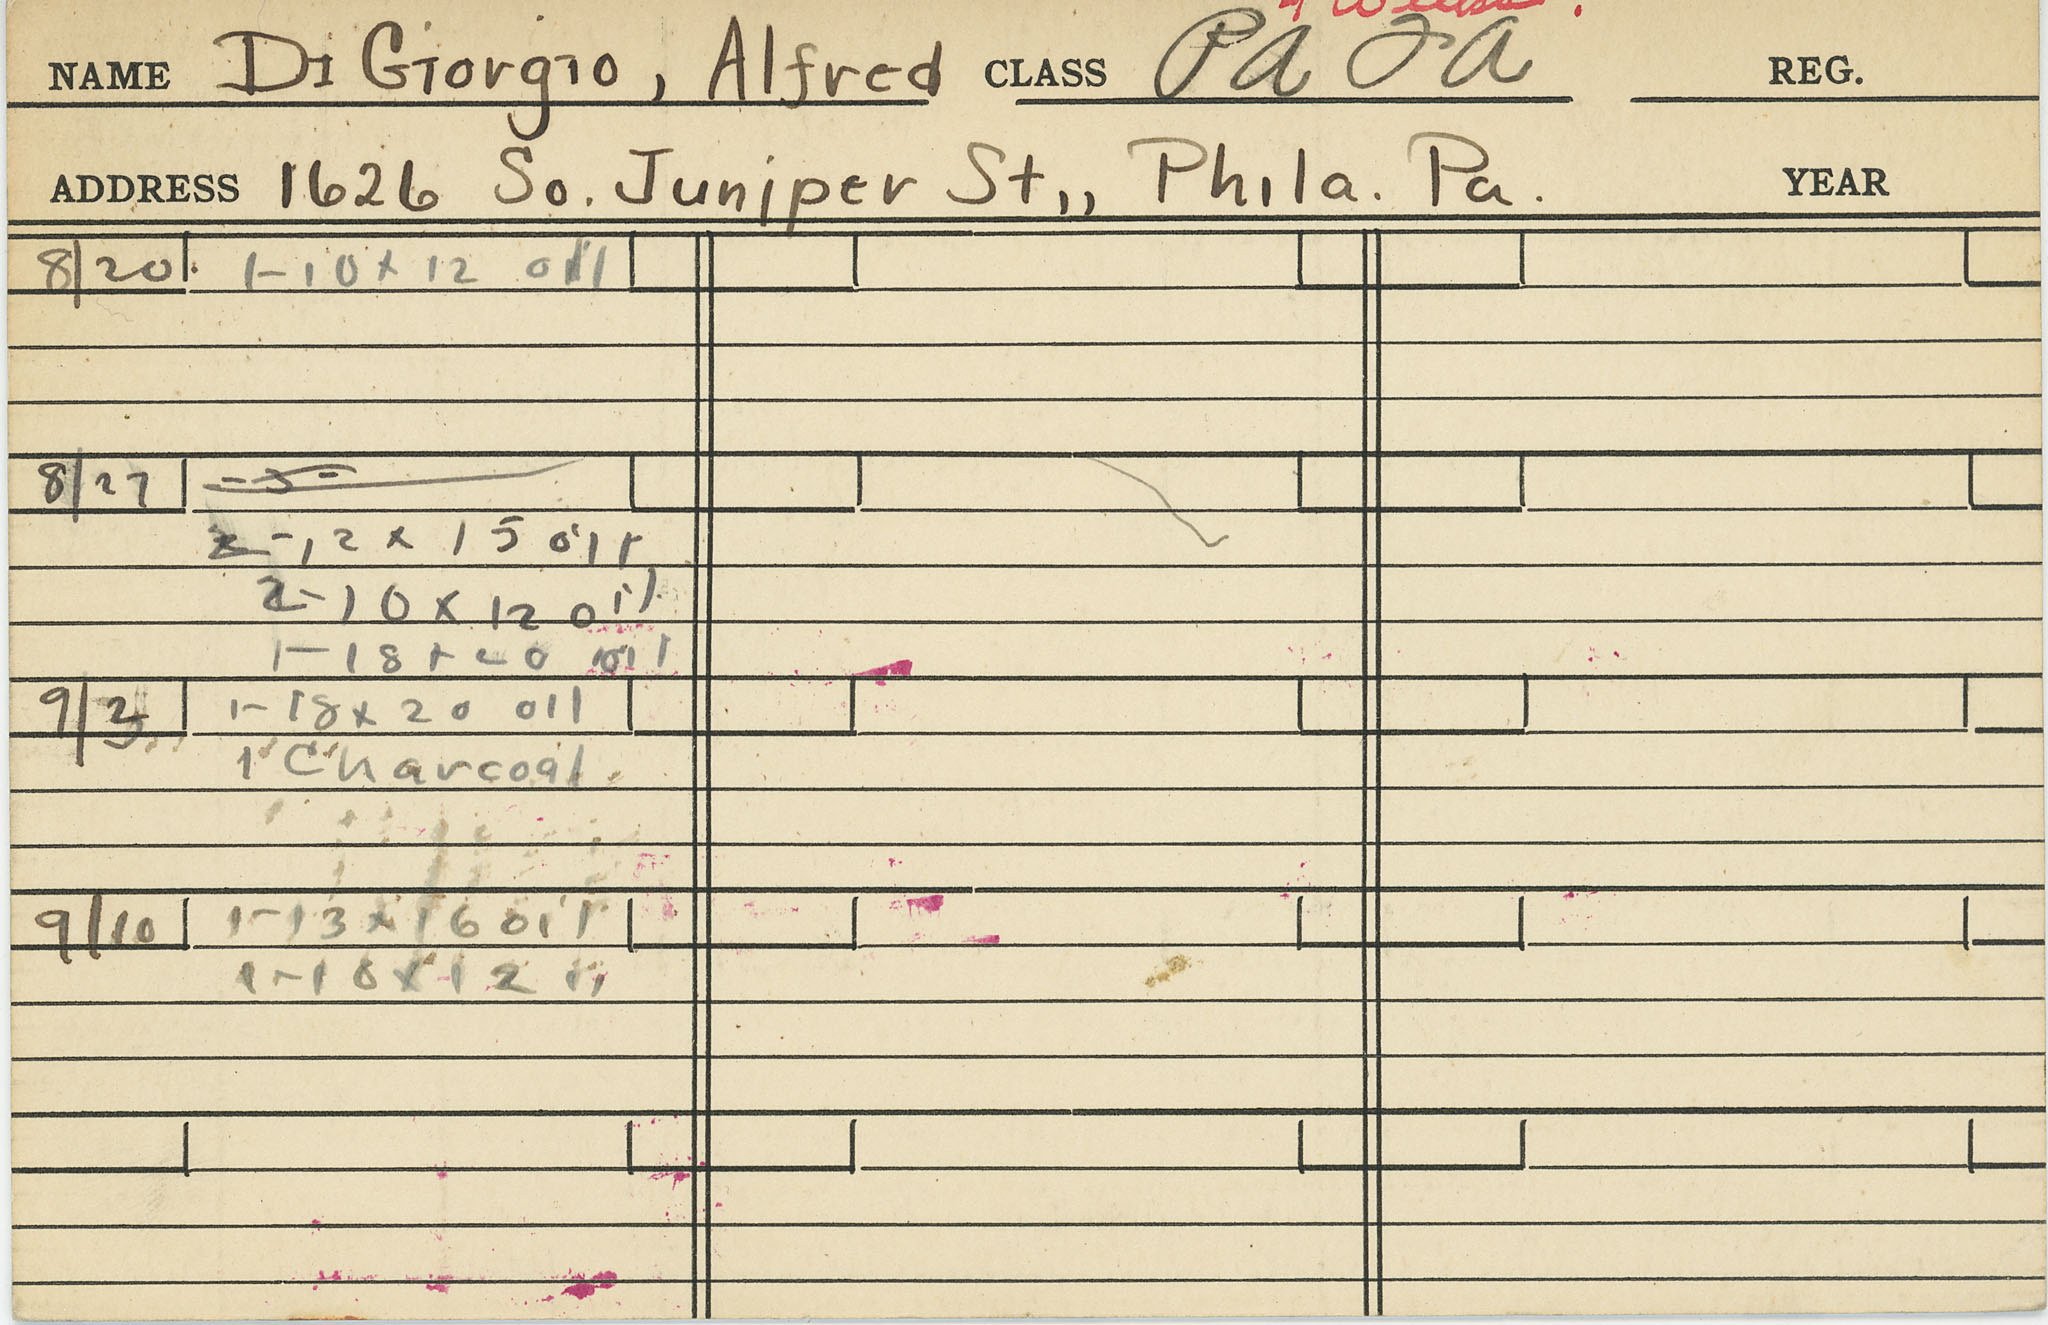 4 Weeks.
NAME DiGiorgio, Alfred CLASS PAFA REG.
ADDRESS 1626 So. Juniper St,, Phila. Pa. YEAR
8/20 1-10x12 oil
8/27
2-12x15 oil
2-10x12 oil
1-18x20 oil
9/2 1-18x20 oil
1 Charcoal
9/10 1-13x16 oil
1-10x12 "